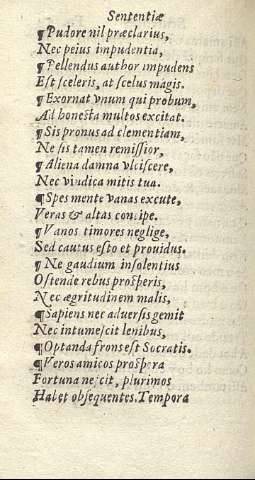 Sententiæ
¶Pudore nil præclarius,
Nec peius impudentia,
¶Pellendus author impudens
Est sceleris, at scelus magis.
¶Exornat vnum qui probum,
Ad honesta multos excitat.
¶Sis pronus ad clementiam,
Ne sis tamen remissior,
¶Aliena damna vlciscere,
Nec vindica mitis tua.
¶Spes mente vanas excute,
Veras & altas concipe.
¶Vanos timores neglige,
Sed cautus esto et prouidus.
¶Ne gaudium insolentius
Ostende rebus prosperis,
Nec ægritudinem malis,
¶Sapiens nec aduersis gemit
Nec intumescit lenibus,
¶Optanda frons est Socratis.
¶Veros amicos prospera
Fortuna nescit, plurimos
Habet obsequentes. Tempora